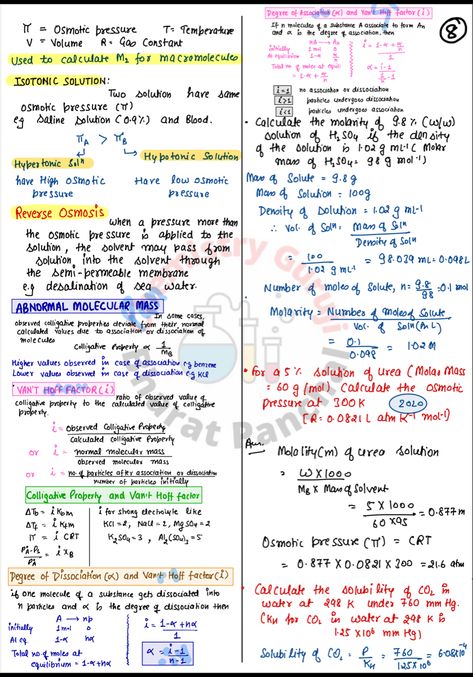 π = Osmotic pressure T = Temperature
V = Volume R = Gas Constant
Used to calculate M₂ for macromolecules
ISOTONIC SOLUTION:
Two solution have same
osmotic pressure (π)
eg Saline solution (0.9%) and Blood.
π_A > π_B
Hypertonic Solⁿ Hypotonic Solution
have High Osmotic pressure
Have low osmotic pressure
Reverse Osmosis
when a pressure more than
the osmotic pressure is applied to the
solution, the solvent may pass from
solution into the solvent through
the semi-permeable membrane
e.g desalination of sea water.
ABNORMAL MOLECULAR MASS
In some cases,
observed colligative properties deviate from their normal
calculated values due to association or dissociation of
molecules
Colligative Property ∝ 1/M_B
Higher values observed in case of association eg benzene
Lower values observed in case of dissociation eg KCl
VAN'T HOFF FACTOR (i)
ratio of observed value of
colligative property to the calculated value of colligative
property.
i = Observed Colligative Property / Calculated Colligative Property
or i = normal molecular mass / observed molecular mass
or i = no of particles after association or dissociation / number of particles initially
Colligative Property and Van't Hoff factor
ΔT_b = i K_b m
ΔT_f = i K_f m
π = i CRT
i for strong electrolyte like
KCl = 2, NaCl = 2, MgSO₄ = 2
K₂SO₄ = 3, Al₂(SO₄)₃ = 5
= i x_B
Degree of Dissociation (α) and Van't Hoff factor (i)
if one molecule of a substance gets dissociated into
n particles and α is the degree of dissociation then
A → np
initially 1 mol 0
At eq. 1-α nα
Total no of moles at
equilibrium = 1-α+nα
i = 1-α+nα / 1
α = i-1 / n-1
Degree of Association (α) and Van't Hoff factor (i)
If n molecules of a substance A associate to form An
and α is the degree of association, then
nA → An
initially 1 mol 0
At equilibrium 1-α α/n
Total no of moles at equili
= 1-α+α/n
i=1 no association or dissociation
i>1 particles undergoes dissociation
i<1 particles undergoes association
8
• Calculate the molarity of 9.8% (w/w)
solution of H₂SO₄ if the density
of the solution is 1.02 g mL⁻¹ (Molar
mass of H₂SO₄ = 98 g mol⁻¹)
Mass of Solute = 9.8g
Mass of Solution = 100g
Density of Solution = 1.02 g mL⁻¹
∴ Vol. of Solⁿ = Mass of Solⁿ / Density of Solⁿ
100 / 1.02 g mL⁻¹ = 98.039 mL = 0.098L
Number of moles of Solute, n = 9.8/98 = 0.1 mol
Molarity = Number of moles of Solute / Vol. of Solⁿ (in L)
= 0.1 / 0.098 = 1.02 M
• for a 5% solution of urea (Molar Mass
= 60 g/mol) Calculate the Osmotic
Pressure at 300K 2020
[R = 0.0821 L atm K⁻¹ mol⁻¹]
Ans. Molality (m) of urea solution
= W × 1000 / M_B × Mass of Solvent
= 5 × 1000 / 60 × 95 = 0.877m
Osmotic pressure (π) = CRT
= 0.877 × 0.0821 × 300 = 21.6 atm
• Calculate the solubility of CO₂ in
water at 298 K under 760 mm Hg.
(K_H for CO₂ in water at 298 K is
1.25 × 10⁶ mm Hg)
Solubility of CO₂ = P / K_H = 760 / 1.25×10⁶